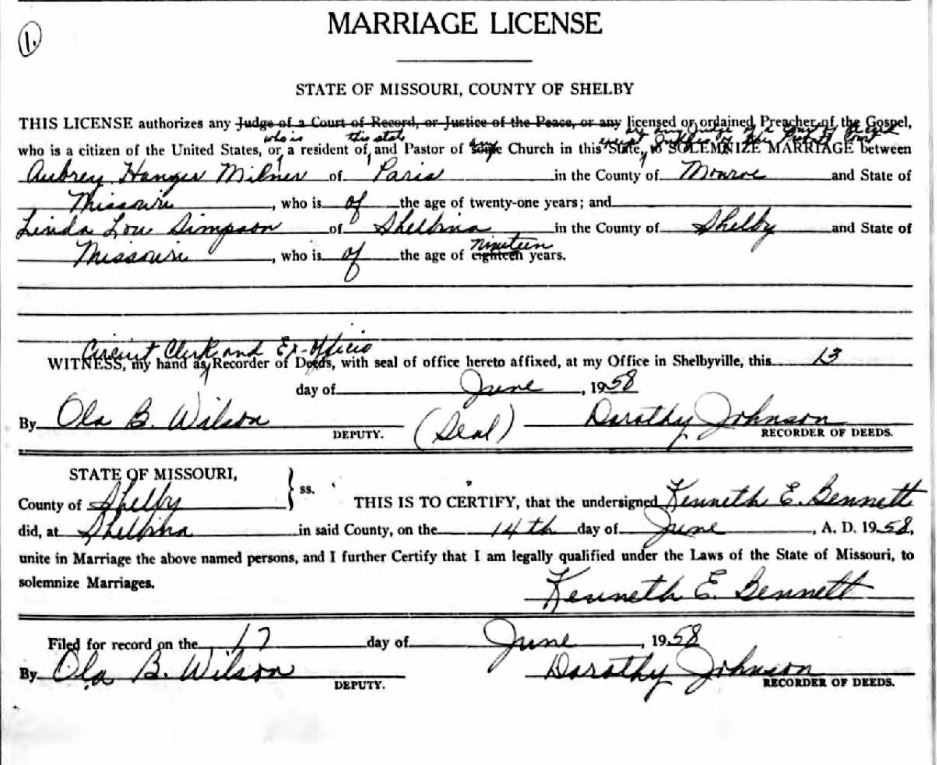 1.
MARRIAGE LICENSE
STATE OF MISSOURI, COUNTY OF SHELBY
THIS LICENSE authorizes any Judge of a Court of Record, or Justice of the Peace, or any licensed or ordained Preacher of the Gospel,
who is this state
who is a citizen of the United States, or a resident of, and Pastor of some Church in this State, to SOLEMNIZE MARRIAGE between
Aubrey Hanger Milner of Paris in the County of Monroe and State of
Missouri, who is of the age of twenty-one years; and
Linda Lou Simpson of Shelbina in the County of Shelby and State of
nineteen
Missouri, who is of the age of eighteen years.
Circuit Clerk and Ex-Officio
WITNESS, my hand as Recorder of Deeds, with seal of office hereto affixed, at my Office in Shelbyville, this 13
day of June, 1958
By Ola B. Wilson (Seal) Dorothy Johnson
DEPUTY. RECORDER OF DEEDS.
STATE OF MISSOURI,
County of Shelby } ss. THIS IS TO CERTIFY, that the undersigned Kenneth E. Bennett
did, at Shelbina in said County, on the 14th day of June, A. D. 1958,
unite in Marriage the above named persons, and I further Certify that I am legally qualified under the Laws of the State of Missouri, to
solemnize Marriages.
Kenneth E. Bennett
Filed for record on the 17 day of June, 1958
By Ola B. Wilson Dorothy Johnson
DEPUTY. RECORDER OF DEEDS.